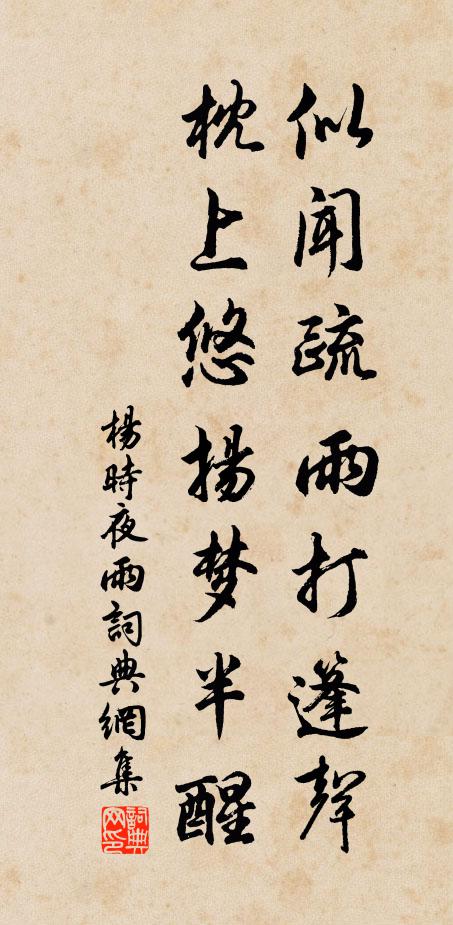 似闻疏雨打篷聲
枕上悠揚梦半醒
楊時夜雨詞典網集
詞典
网印